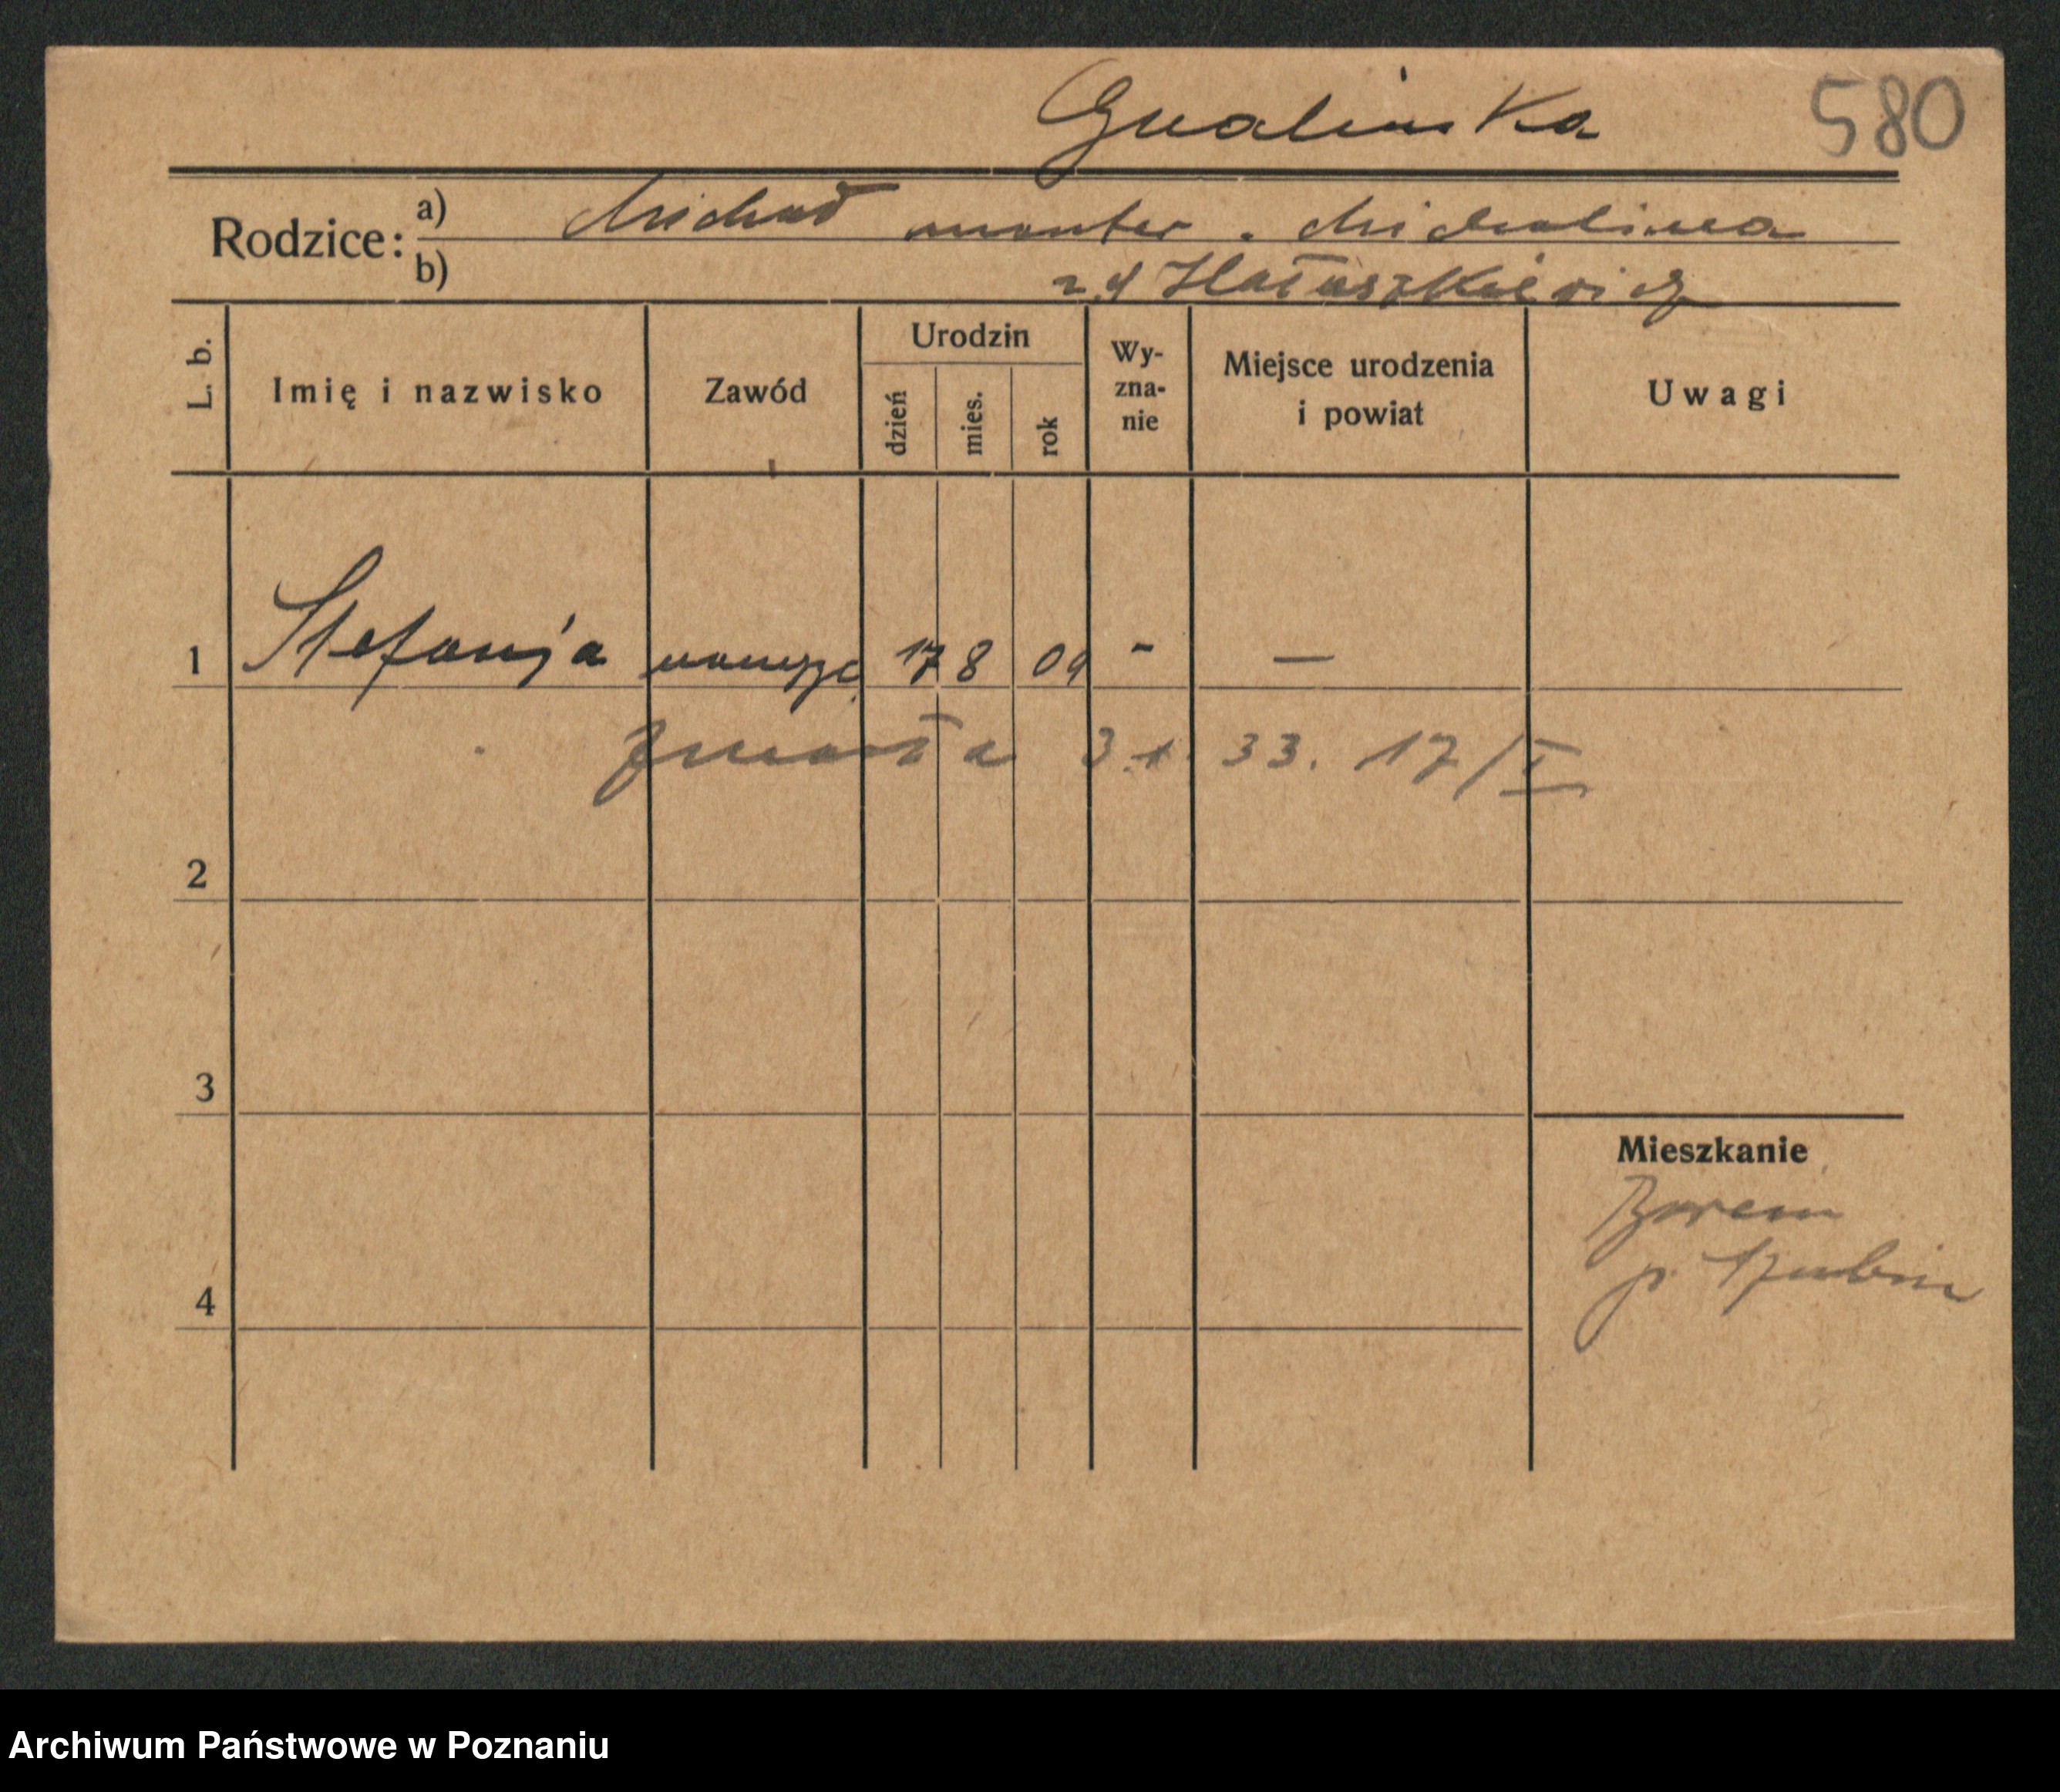 Gualińska 580
Rodzice: a) Michał monter. Michalina
b) zd Hałuszkiewicz
L. b. Imię i nazwisko Zawód Urodzin dzień mies. rok Wy-zna-nie Miejsce urodzenia i powiat Uwagi
1 Stefanja 17 8 09 - —
zmarła 3.1. 33. 17/I
2
3
Mieszkanie
4
Archiwum Państwowe w Poznaniu